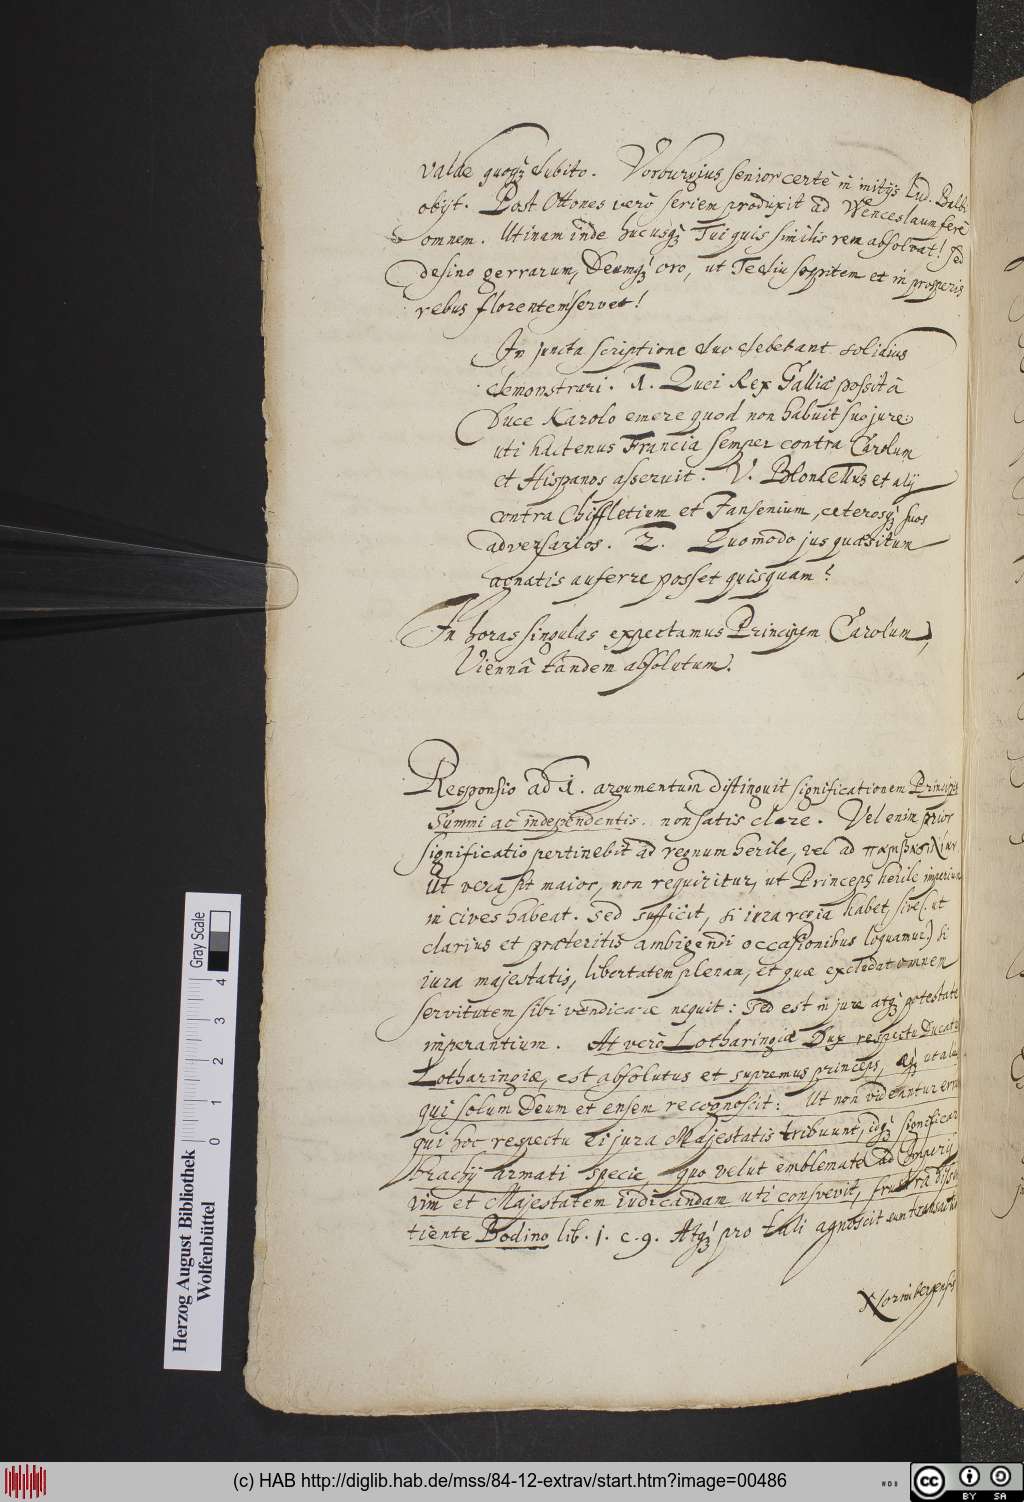 valde quoqꝫ dubito. Vorburgius senior certe in initijs Lud. Balbi
obijt. Post Ottones verò seriem produxit ad Wenceslaum ferè
omnem. Utinam inde hucusqꝫ Tui quis similis rem absolvat! sed
desino gerrarum, Deumqꝫ oro, ut Te diu sospitem et in prosperis
rebus florentem servet!
In juncta scriptione duo debebant solidius
demonstrari. 1. Quei Rex Galliæ possit à
Duce Karolo emere quod non habuit suo jure
uti hactenus Francia semper contra Carolum
et Hispanos asseruit. V. Blondellus et alij
contra Chiffletium et Jansenium, ceterosqꝫ suos
adversarios. 2. Quomodo jus quæsitum
agnatis auferre posset quisquam?
In horas singulas expectamus Principem Carolum,
Viennâ tandem absolutum.
Responsio ad 1. argumentum distinguit significationem Principis
Summi ac independentis non satis clare. Vel enim prior
significatio pertinebit ad regnum herile, vel ad παμβασιλείαν
Ut vera sit maior, non requiritur, ut Princeps herile imperium
in cives habeat. Sed sufficit, si iura regia habet, sive (ut
clarius et præteritis ambigendi occasionibus loquamur) si
iura majestatis, libertatem plenam, et quæ excludat omnem
servitutem sibi vendicare nequit: Sed est in jure atqꝫ potestate
imperantium. At verò Lotharingiæ Dux respectu Ducatus
Lotharingiæ, est absolutus et supremus princeps, æqꝫ ut alii
qui solum Deum et ensem recognoscit: Ut non videantur errare
qui hoc respectu ei jura Majestatis tribuunt, idqꝫ significari
brachij armati specie, quo velut emblemate ad Imperij
vim et Majestatem iudicandam uti consvevit, frustrà dissen
tiente Bodino lib. 1. c. 9. Atqꝫ pro tali agnoscit eum transactio
Norimbergensis
Herzog August Bibliothek
Wolfenbüttel
0 1 2 3 4
Gray Scale
(c) HAB http://diglib.hab.de/mss/84-12-extrav/start.htm?image=00486
WDB
cc BY SA